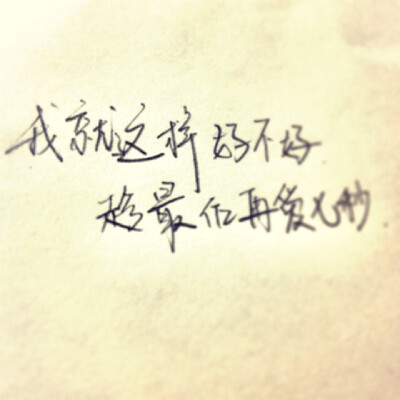 我就这样好不好
趁最后再爱几秒